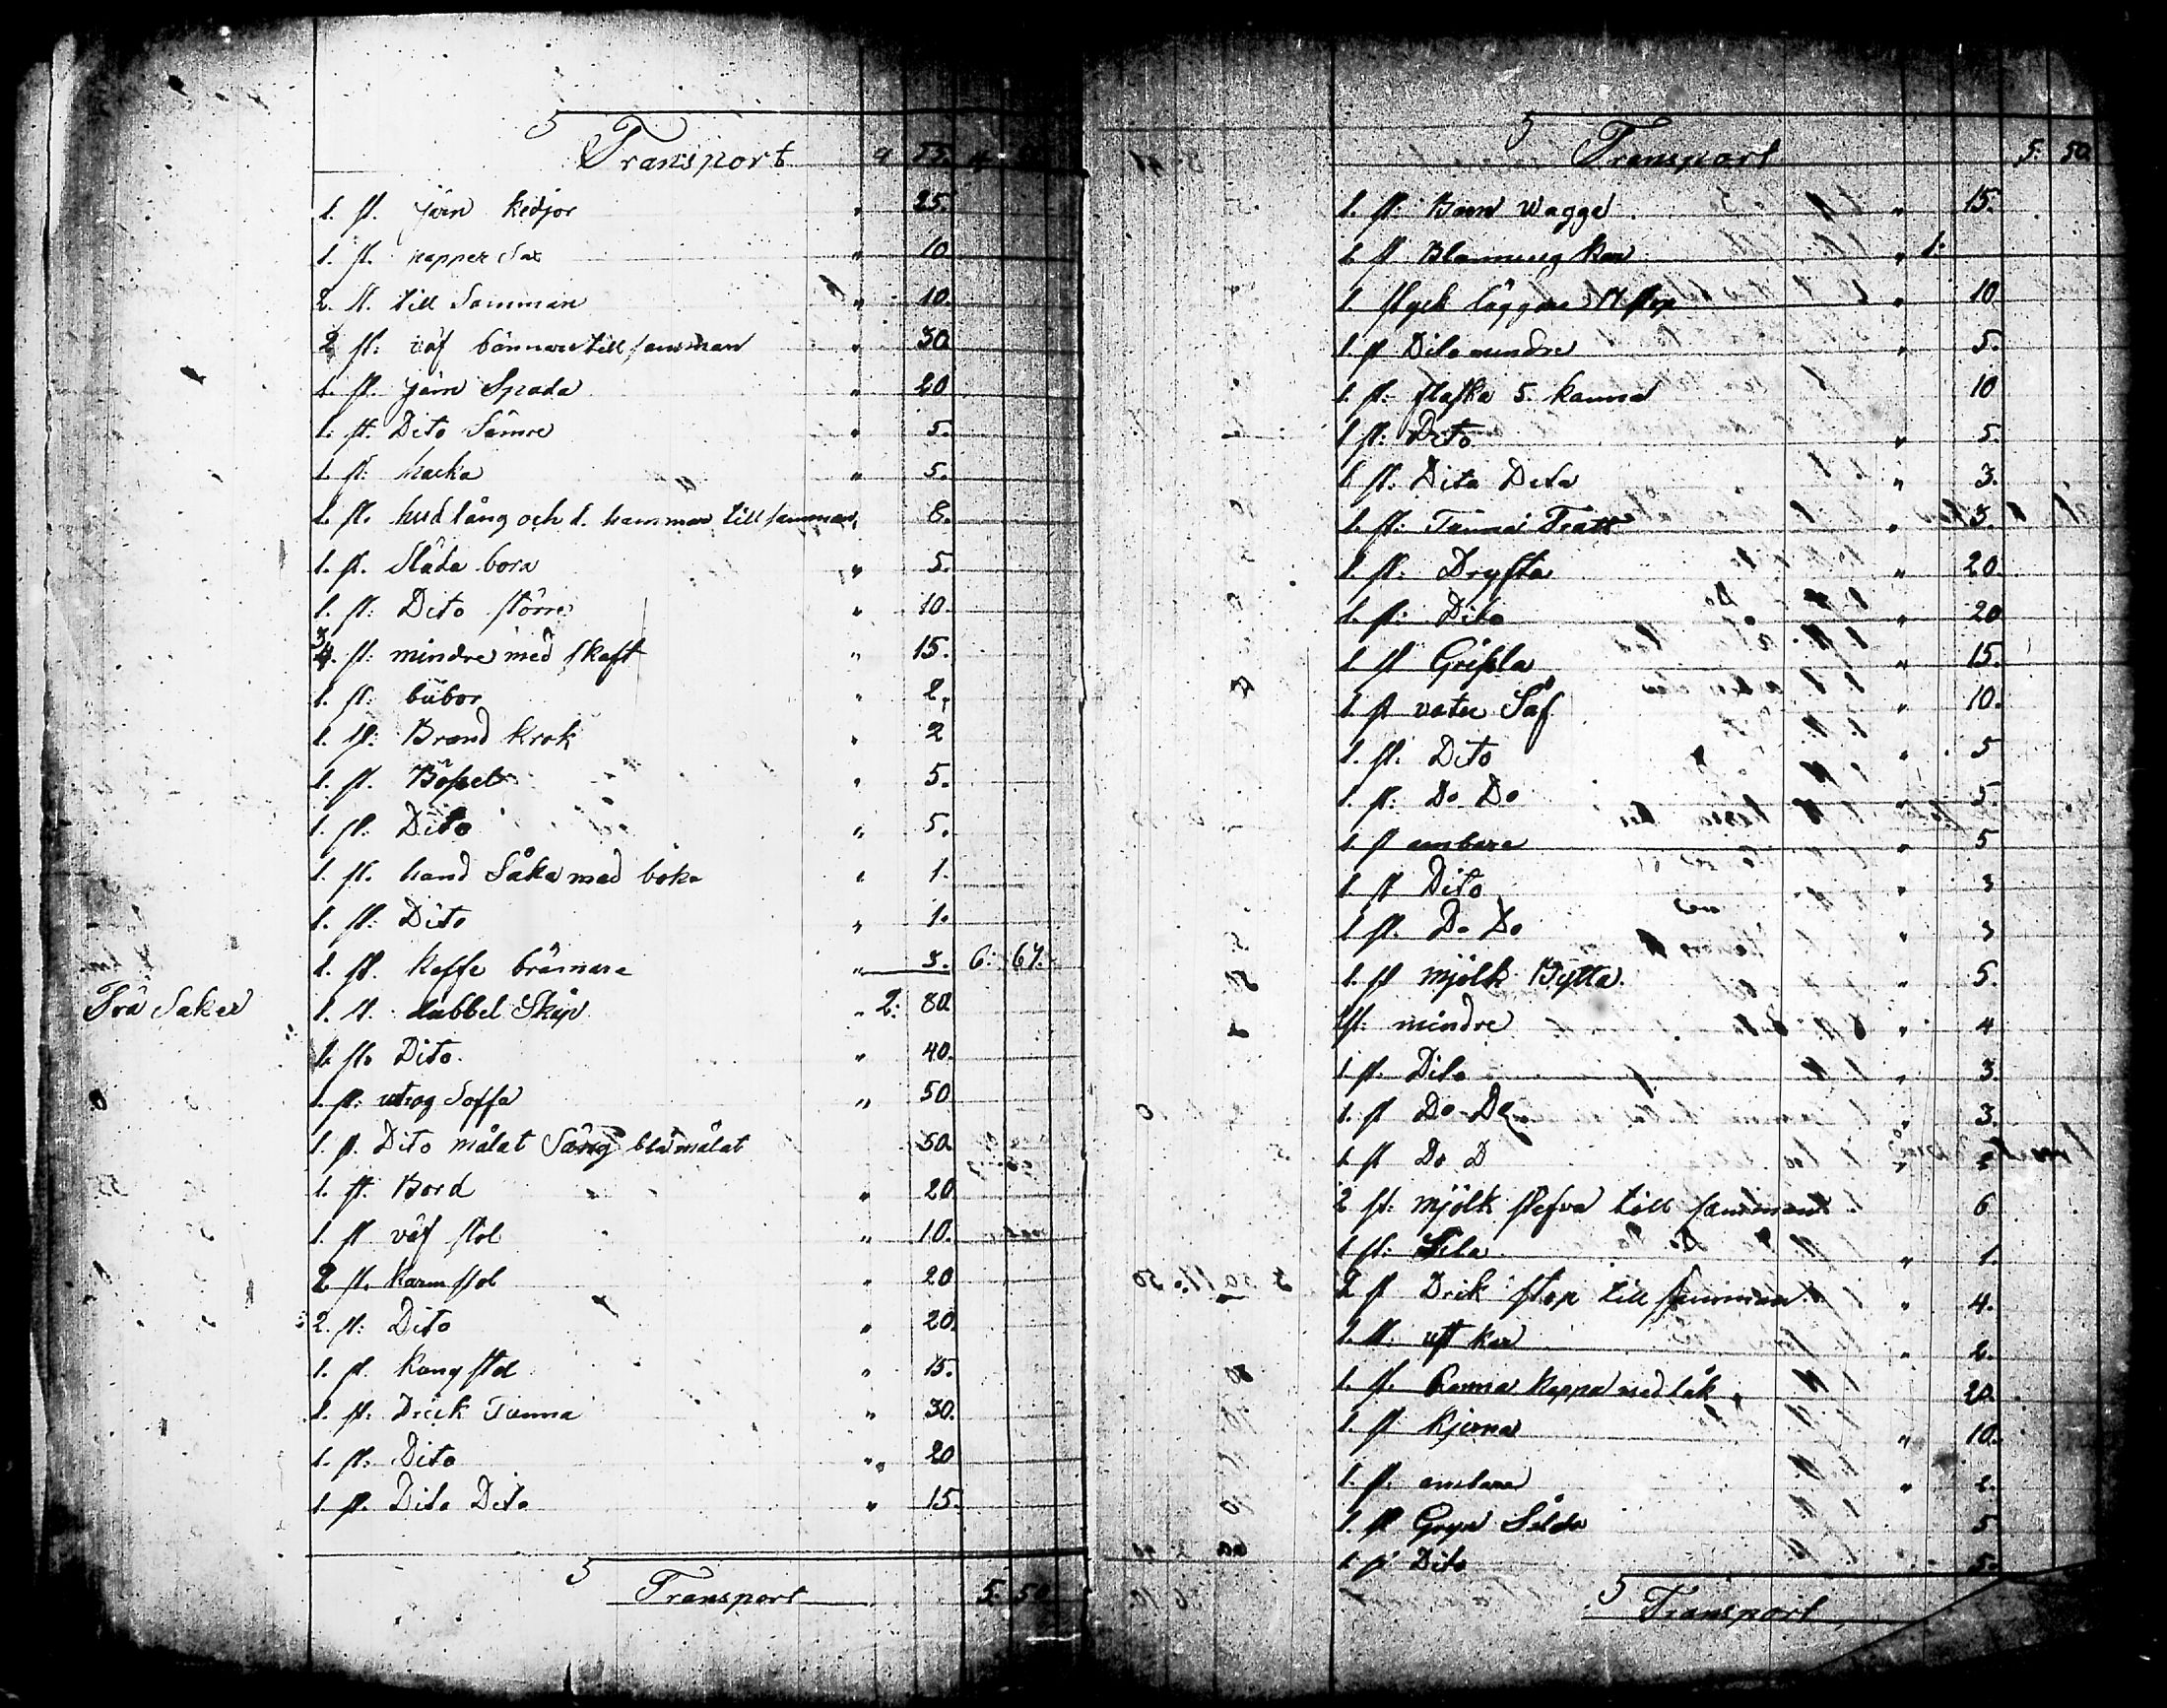 Transport 4 55. 4
1. st. järn kedjor " 25.
1. st. papper Sax " 10
2. st. till Samman " 10.
2 st: väf bommar till samman " 30
1. st. järn Spada " 20
1. st. Dito Sämre " 5.
1. st: hacka " 5.
1. st. hud tång och 1. hammar till samman " 8.
1. st. Släda bora " 5.
1. st: Dito större " 10.
3 st: mindre med skaft " 15.
1. st: " 2,
1. st: Brand krok " 2
1. st. " 5.
1. st. Dito " 5.
1. st. hand Såka med " 1.
1. st: Dito " 1.
1. st. Kaffe brännare " 3. 6: 67.
Trä Saker 1. st. dubbel Skåp " 2: 80.
1. st. Dito. " 40.
1. st: utdrog Soffa " 50
1. st. Dito målat Säng blåmålat 50.
1. st. Bord " 20
1. st väf stol " 10.
2 st. Karm stol " 20
2. st: Dito " 20.
1. st. Kong stol " 15.
1. st: Drick Tunna " 30.
1. st: Dito " 20
1. st. Dito Dito " 15.
Transport 5. 50
Transport 5. 50
1. st: Barn Wagga " 15.
1. st " 1:
1. styck läggare 17 stop " 10
1 st Dito mindre " 5.
1. st: flaska 5. kanna 10
1 st: Dito " 5.
1 st. Dito Dito " 3.
1. st: Tunna Tratt " 3.
1. st: Drysta " 20.
1. st: Dito " 20
1 st Grissla " 15.
1. st vatu Så " 10.
1. st. Dito " 5
1. st: Do Do " 5.
1 st ambare " 5
1 st Dito " 3
1 st. Do Do " 3
1. st mjölk Bytta. " 5.
1st: mindre " 4
1. st. Dito " 3.
1. st Do Do " 3.
1 st Do D "
2 st: mjölk stefva till samman 6
1 st: Sila " 1.
2 st Drik stop till samman " 4.
1. st: ost kar " 2.
1. st. Kanna Kappa med låk " 20.
1 st Kjerna " 10.
1. st: ambare " 2.
1. st Gryn Sålda 5
1 st Dito 5.
Transport